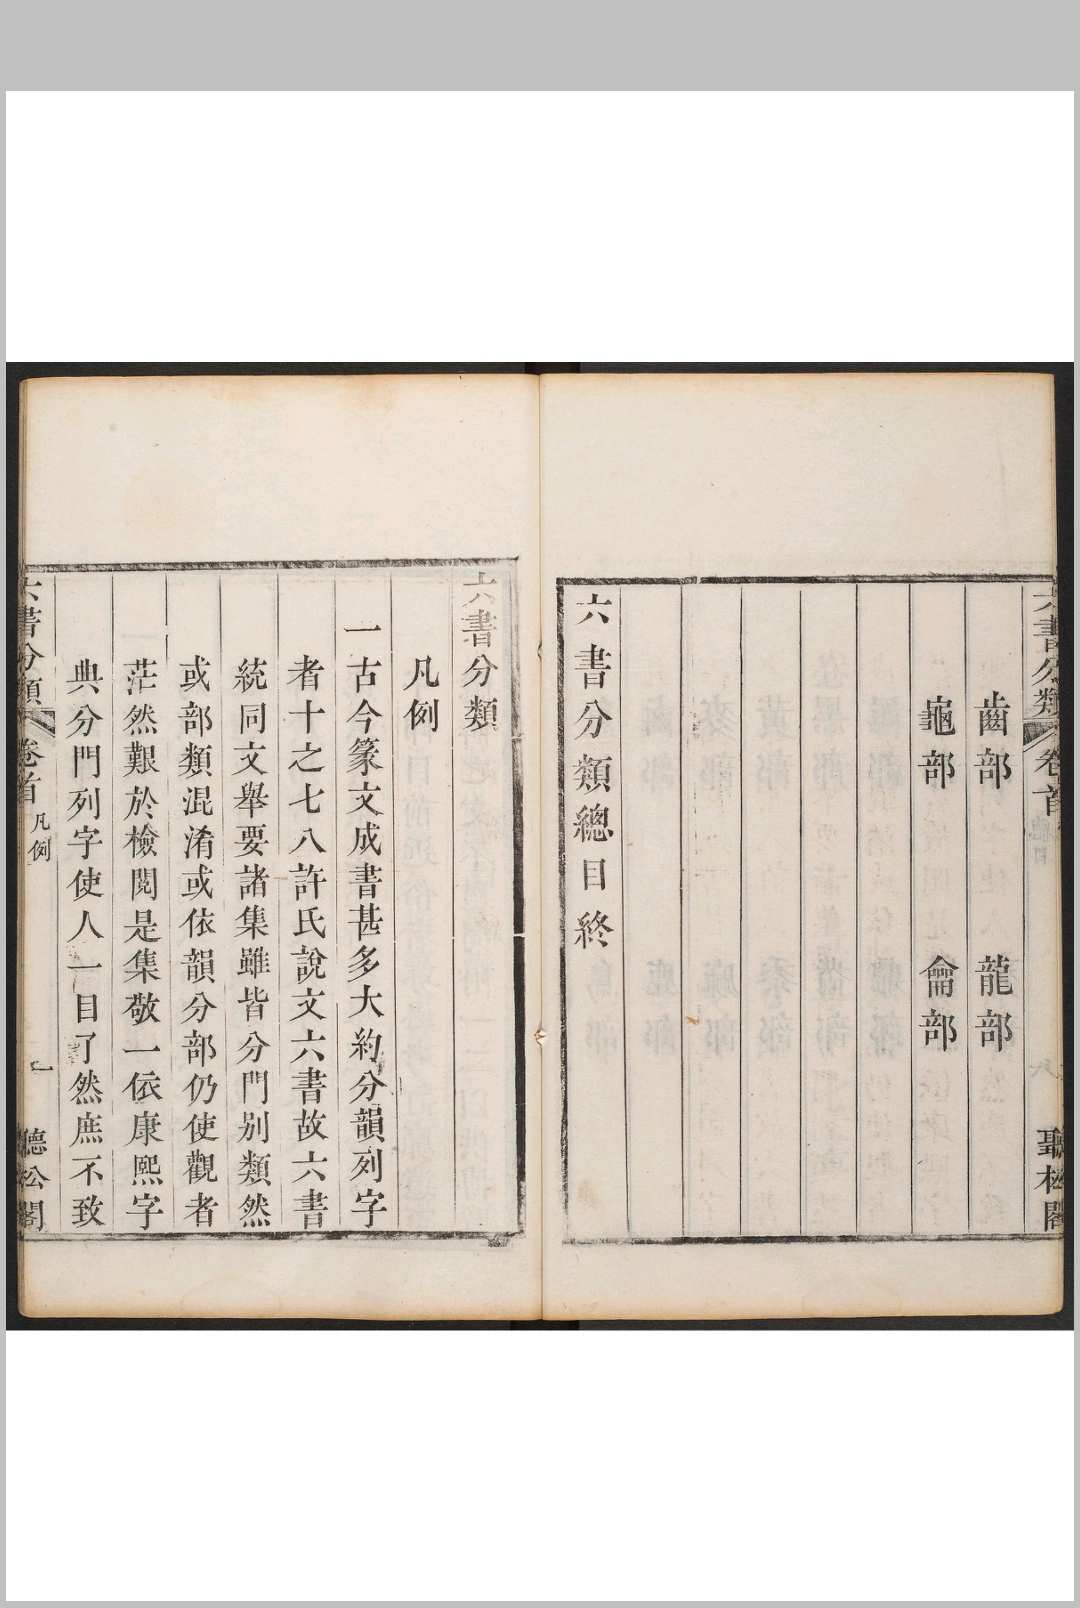 六書分類 卷首 總目 八 聽松閣
齒部 龍部
龜部 龠部
六書分類總目終
六書分類
凡例
一古今篆文成書甚多大約分韻列字
者十之七八許氏說文六書故六書
統同文舉要諸集雖皆分門別類然
或部類混淆或依韻分部仍使觀者
茫然艱於檢閱是集敬一依康熙字
典分門列字使人一目了然庶不致
六書分類 卷首 凡例 一 聽松閣